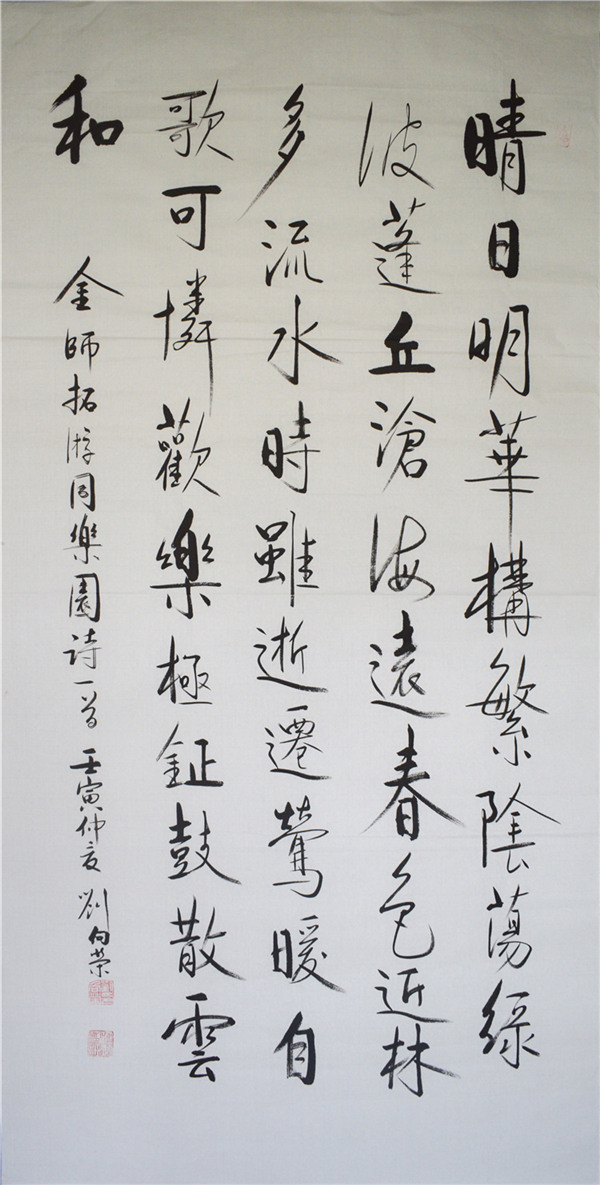 晴日明華構繁陰蕩綠
波蓬丘滄海遠春色近林
多流水時雖逝遷鶯暖自
歌可憐歡樂極鉦鼓散雲
和
金師拓游同樂園詩一首 壬寅仲夏 劉向榮